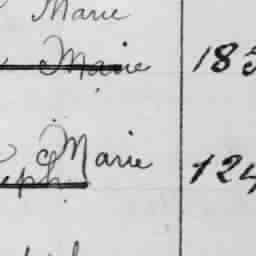 Marie
Marie 185
Marie 124
eph